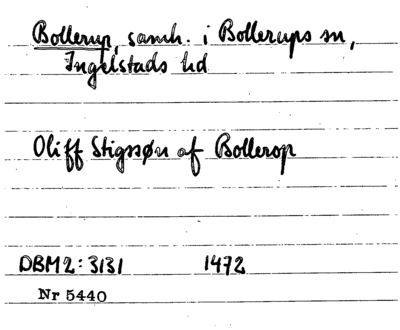 Bollerup, samh. i Bollerups sn,
Ingelstads hd
Oliff Stigssøn af Bollerop
DBM2:3131 1472
Nr 5440